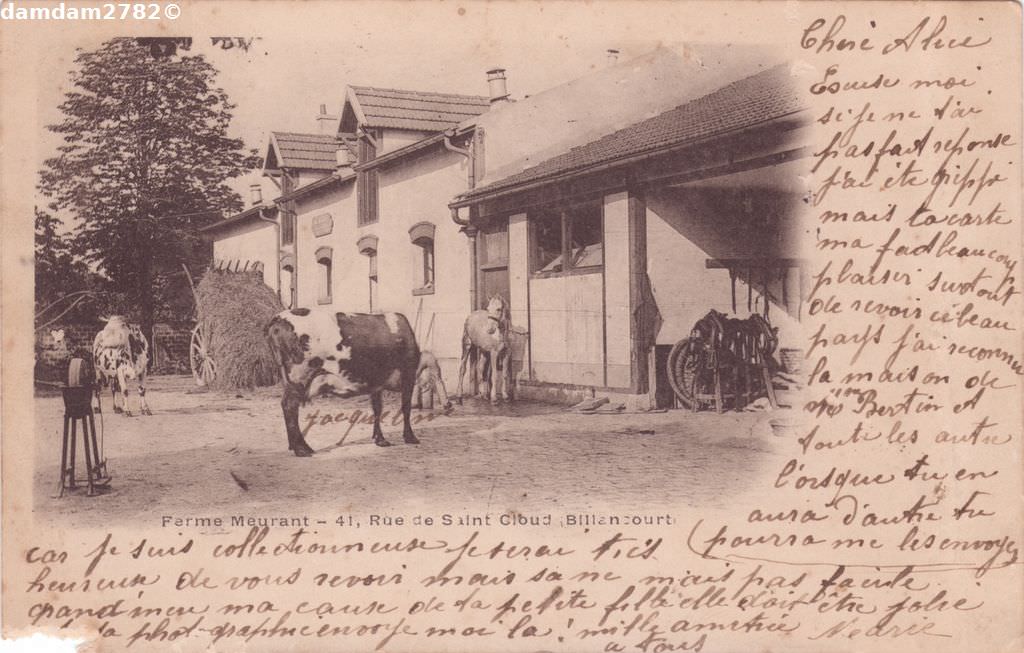 damdam2782©
Cheré Alice
Escuse moi
si je ne t'ai
pas fait reponse
j'ai ete grippe
mais ta carte
ma fait beaucoup
plaisir surtout
de revoir ce beau
pays j'ai reconnu
la maison de
Bertin et
toute les autre
l'orsque tu en
aura d'autre tu
(pourra me les envoyer
Jacqueline
Ferme Meurant - 41, Rue de Saint Cloud (Billancourt)
car je suis collectionneuse je serai très
heureuse de vous revoir mais sa ne mais pas facile
grand meu ma cause de ta petite fille elle doit être jolie
la photographie envoye moi la! mille amitiée Marie
a tous